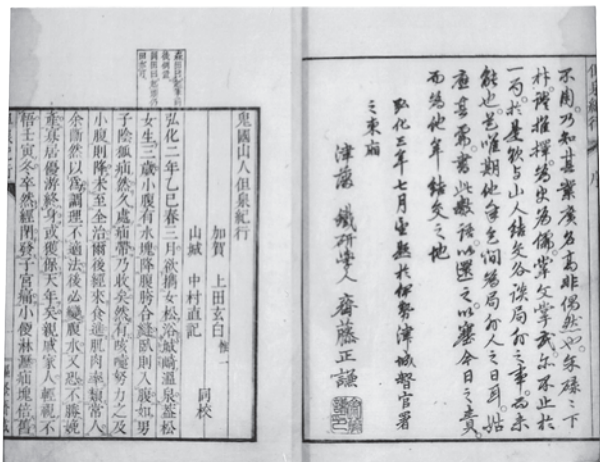 但泉紀行 序
不用乃知其業廣名高非偶然也余碌々下
朴謹推擇為史為儒掌文學武亦不止於
一局於是欲与山人結交各談局外之事而未
能也豈唯期他年 同為局外人之日耳姑
應其需書此數語以還之以塞今日之責
而為他年結交之地
弘化三年七月望題於伊勢津城督官署
之東廂
津藩 鐵研學人 齋藤正謙
鬼國山人但泉紀行
加賀 上田玄白 惟一
山城 中村直記 同校
弘化二年乙巳春三月欲攜女松浴城崎溫泉蓋松
女生三歲小腹有水塊降腹胯合縫臥則入腹如男
子陰㿉疝然久處疝帶乃收矣然有咳嚏努力之及
小腹則降未至全治爾後經來食進肌肉率類常人
余斷然以為調理不適法後必變腹水又恐不勝娩
產寡居優游終身或獲保天年矣親戚家人輕視不
悟壬寅冬卒然經閉發子宮痛小便淋瀝疝塊倍舊